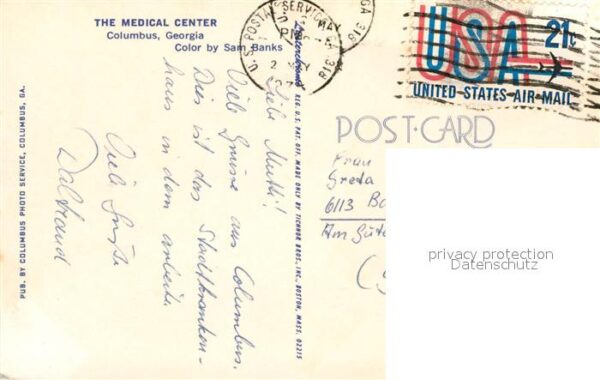 THE MEDICAL CENTER
Columbus, Georgia
Color by Sam Banks
PUB. BY COLUMBUS PHOTO SERVICE, COLUMBUS, GA.
REG. U.S. PAT. OFF. MADE ONLY BY TICHNOR BROS., INC., BOSTON, MASS. 02215
Liebe Mutti!
Viele Grüsse aus Columbus.
Dies ist das Stadtkranken-
haus in dem arbeite.
Viele Grüße
Waltraud
U.S. POSTAL SERVICE
GA 318
PM
2
MAY
USA 21c
UNITED STATES AIR MAIL
POST CARD
Frau
Greta
6113 Ba
Am Güte
privacy protection
Datenschutz